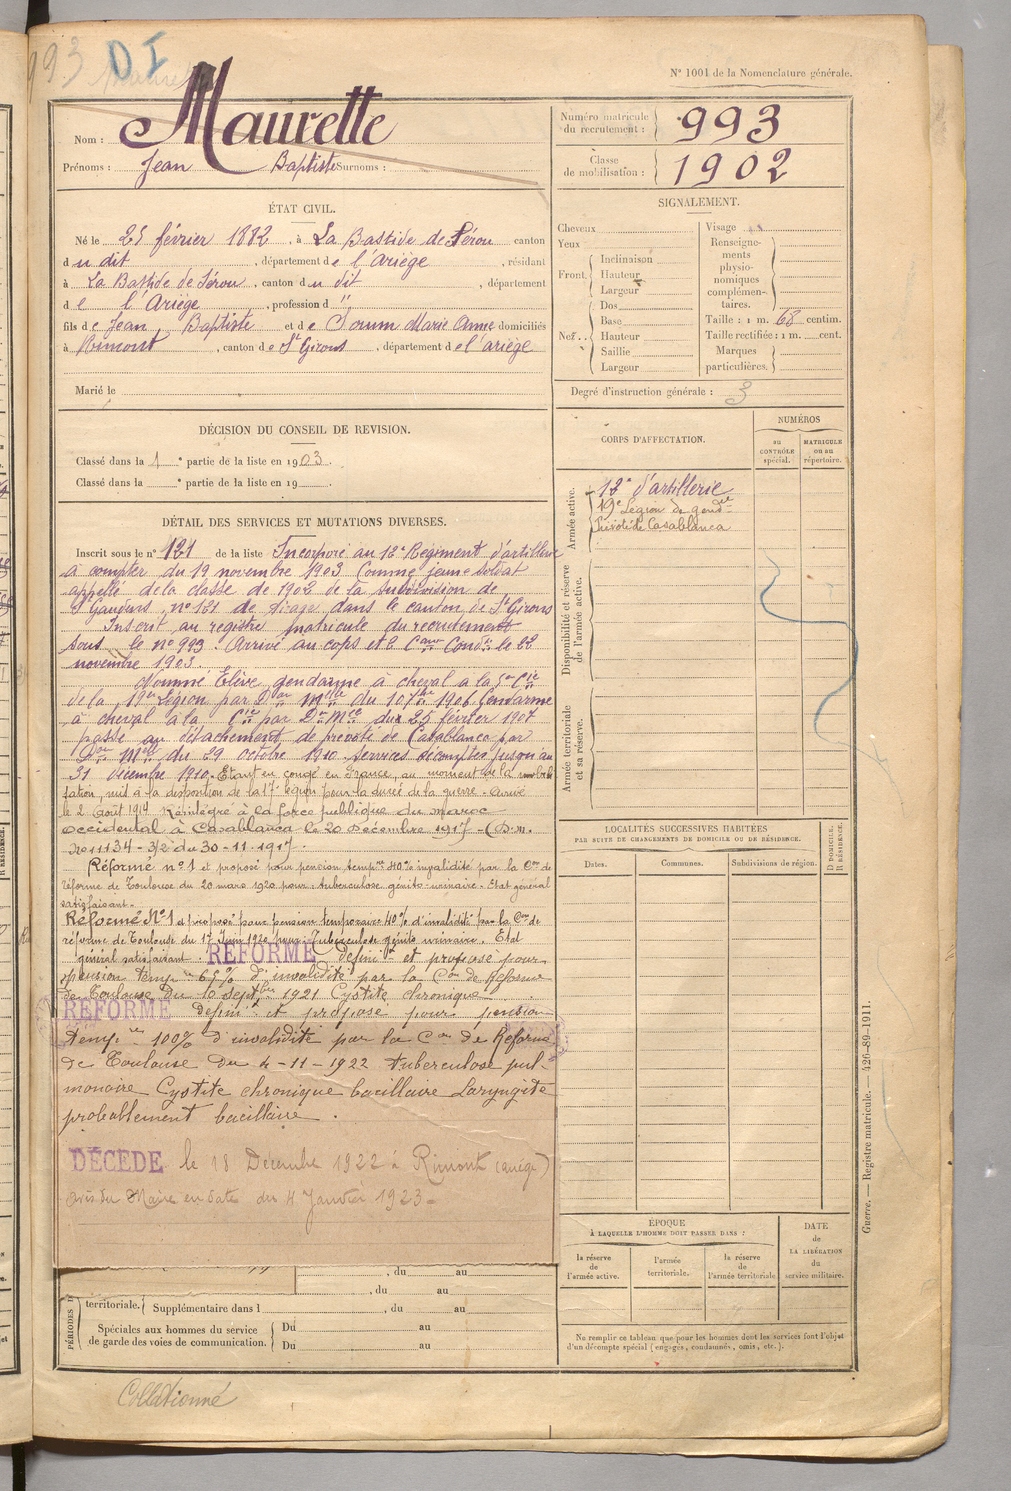 993 DI
N° 1001 de la Nomenclature générale.
Nom : Maurette
Prénoms : Jean Baptiste Surnoms :
Numéro matricule du recrutement : 993
Classe de mobilisation : 1902
ÉTAT CIVIL.
Né le 25 février 1882, à La Bastide de Sérou canton
du dit, département de l'Ariège, résidant
à La Bastide de Sérou, canton du dit, département
de l'Ariège, profession d "
fils de Jean Baptiste et de Soum Marie Anne domiciliés
à Rimont, canton de St Girons, département de l'ariège
Marié le
SIGNALEMENT.
Cheveux
Yeux
Front.
Inclinaison
Hauteur
Largeur
Nez..
Dos
Base
Hauteur
Saillie
Largeur
Visage
Renseignements physionomiques complémentaires.
Taille : 1 m. 68 centim.
Taille rectifiée : 1 m. cent.
Marques particulières.
Degré d'instruction générale : 3
DÉCISION DU CONSEIL DE REVISION.
Classé dans la 1e partie de la liste en 1903.
Classé dans la e partie de la liste en 19 .
CORPS D'AFFECTATION.
NUMÉROS
au CONTRÔLE spécial.
MATRICULE ou au répertoire.
Armée active.
18e d'artillerie
19e Légion de gendie
Prévôté de Casablanca
Disponibilité et réserve de l'armée active.
Armée territoriale et sa réserve.
DÉTAIL DES SERVICES ET MUTATIONS DIVERSES.
Inscrit sous le n° 121 de la liste Incorporé au 18e Régiment d'artillerie
à compter du 19 novembre 1903 Comme jeune soldat
appelé de la classe de 1902 de la subdivision de
St Gaudens, n° 121 de tirage dans le canton de St Girons
Inscrit au registre matricule du recrutement
sous le n° 993. Arrivé au corps et 2e Cer Condr le 22
novembre 1903.
Nommé Elève gendarme à cheval a la 5e Cie
de la 19e Légion par Don Melle du 10 7bre 1906 Gendarme
à cheval à la Cie par Don Mle du 25 février 1907
passé au détachement de prévôté de Casablanca par
Don Melle du 29 octobre 1910 services décomptés jusqu'au
31 décembre 1910. Etant en congé en France, au moment de la mobili
sation, mis à la disposition de la 17e légion pour la durée de la guerre. Arrivé
le 2 Août 1914 Réintégré à la force publique du maroc
occidental à Casablanca le 20 Décembre 1917 - (D.M.
No 11134 - 3/2 du 30-11-1917.
Réformé n° 1 et proposé pour pension tempre 40% invalidité par la Con de
réforme de Toulouse du 20 mars 1920 pour tuberculose génito-urinaire. Etat général
satisfaisant.
Réformé N° 1 et proposé pour pension temporaire 40% d'invalidité par la Con de
réforme de Toulouse du 17 Juin 1920 pour Tuberculose génito urinaire. Etat
général satisfaisant. RÉFORMÉ définif et proposé pour
pension tempre 65% d'invalidité par la Con de Réforme
de Toulouse du 10 septbre 1921 Cystite chronique
RÉFORMÉ définif et proposé pour pension
tempre 100% d'invalidité par la Con de Réforme
de Toulouse du 4-11-1922 tuberculose pul-
monaire Cystite chronique bacillaire Laryngite
probablement bacillaire.
DÉCÉDÉ le 18 Décembre 1922 à Rimont (ariège)
avis du Maire en date du 4 Janvier 1923-
LOCALITÉS SUCCESSIVES HABITÉES
PAR SUITE DE CHANGEMENTS DE DOMICILE OU DE RÉSIDENCE.
Dates.
Communes.
Subdivisions de région.
D DOMICILE.
R RÉSIDENCE.
ÉPOQUE
À LAQUELLE L'HOMME DOIT PASSER DANS :
la réserve de l'armée active.
l'armée territoriale.
la réserve de l'armée territoriale
DATE
de
LA LIBÉRATION
du
service militaire.
, du au
, du au
PÉRIODES D
territoriale. Supplémentaire dans l , du au
Spéciales aux hommes du service
de garde des voies de communication.
Du au
Du au
Ne remplir ce tableau que pour les hommes dont les services font l'objet
d'un décompte spécial (engagés, condamnés, omis, etc.).
Guerre. — Registre matricule. — 426-89-1911.
Collationné